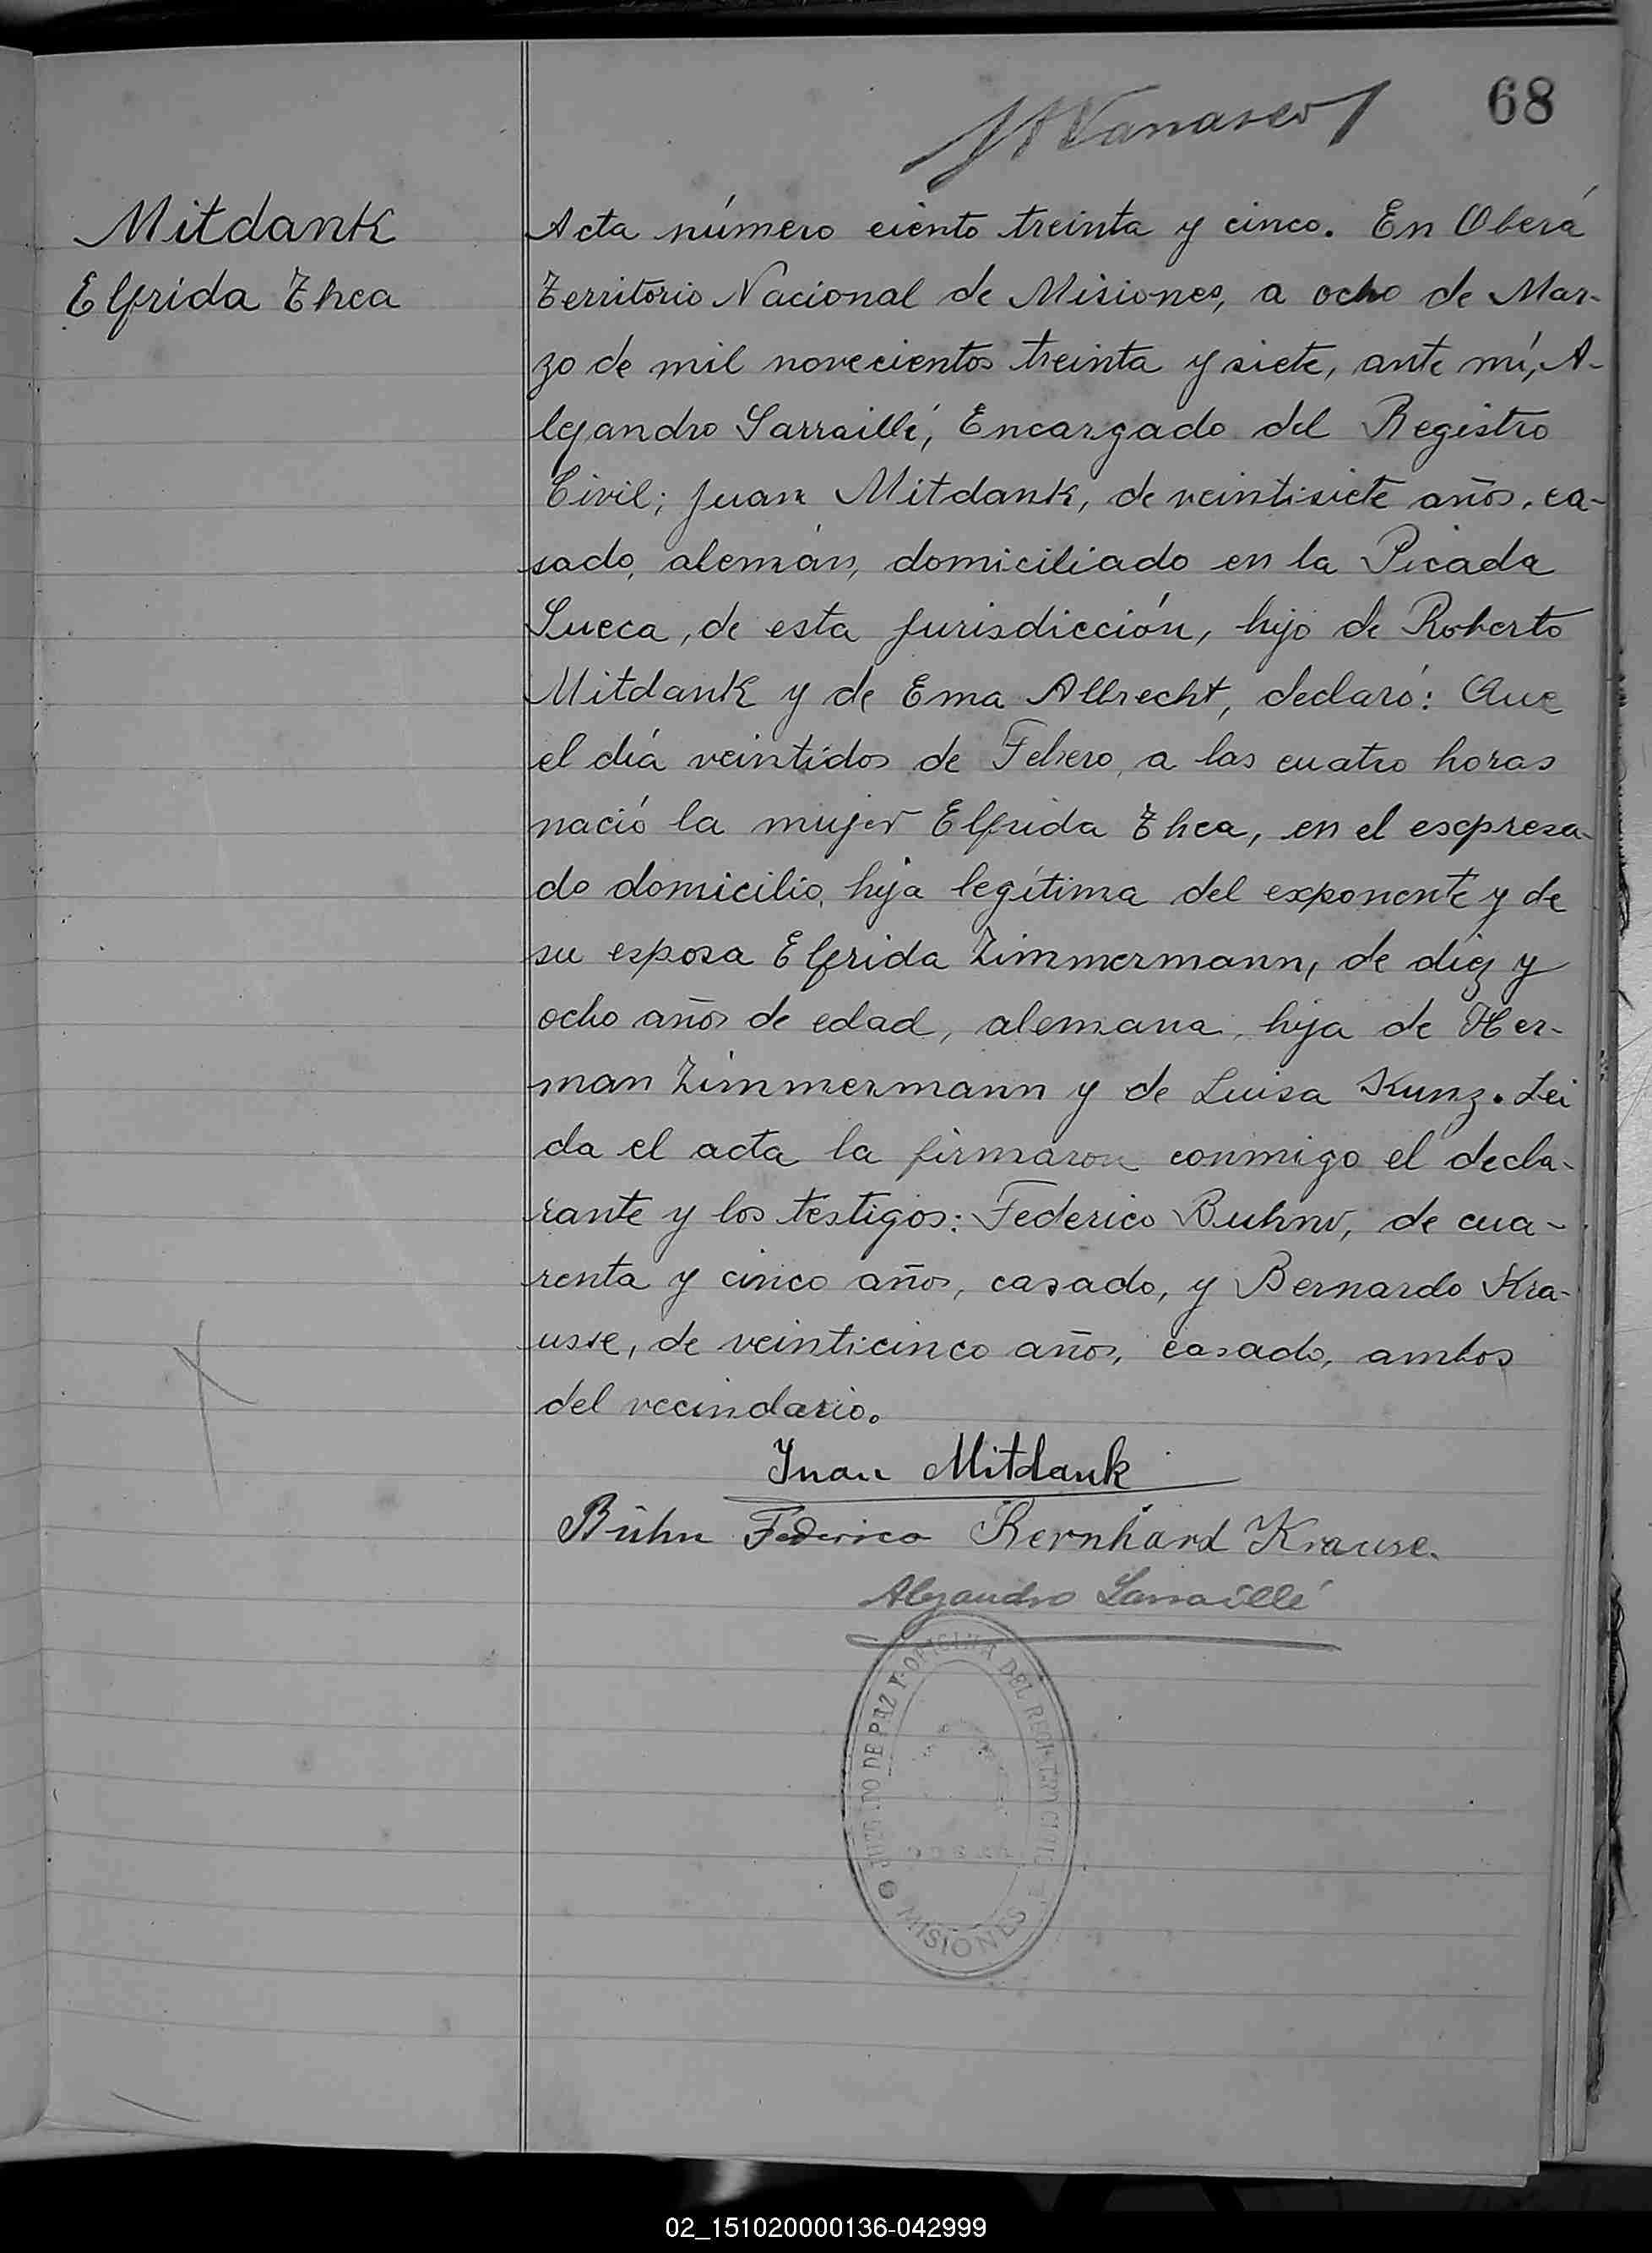 68
Mitdank
Elfrida Thea
Acta número ciento treinta y cinco. En Oberá
Territorio Nacional de Misiones, a ocho de Mar-
zo de mil novecientos treinta y siete, ante mí, A-
lejandro Sarraillé, Encargado del Registro
Civil; Juan Mitdank, de veintisiete años, ca-
sado, alemán, domiciliado en la Picada
Sueca, de esta jurisdicción, hijo de Roberto
Mitdank y de Ema Albrecht, declaró: Que
el día veintidos de Febrero, a las cuatro horas
nació la mujer Elfrida Thea, en el expresa-
do domicilio, hija legítima del exponente y de
su esposa Elfrida Zimmermann, de diez y
ocho años de edad, alemana, hija de Her-
man Zimmermann y de Luisa Kunz. Lei
da el acta la firmaron conmigo el decla-
rante y los testigos: Federico Buhnv, de cua-
renta y cinco años, casado, y Bernardo Kra-
usse, de veinticinco años, casado, ambos
del vecindario.
Juan Mitdank
Bühn Federico Bernhard Krause.
Alejandro Sarraillé
JUZGADO DE PAZ Y OFICINA DEL REGISTRO CIVIL
MISIONES
02_151020000136-042999